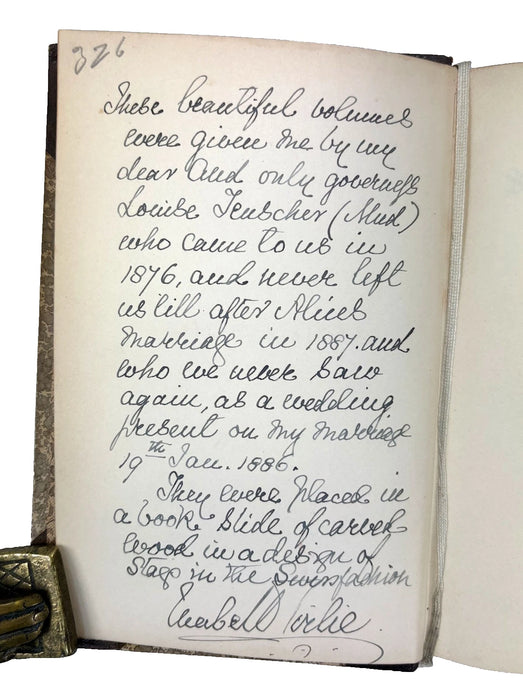 326
These beautiful volumes
were given me by my
dear and only governess
Louise Teuscher (Mud)
who came to us in
1876, and never left
us till after Alices
marriage in 1887. and
who we never saw
again, as a wedding
present on my marriage
19th Jan. 1886.
They were placed in
a book slide of carved
wood in a design of
Stags in the Swiss fashion